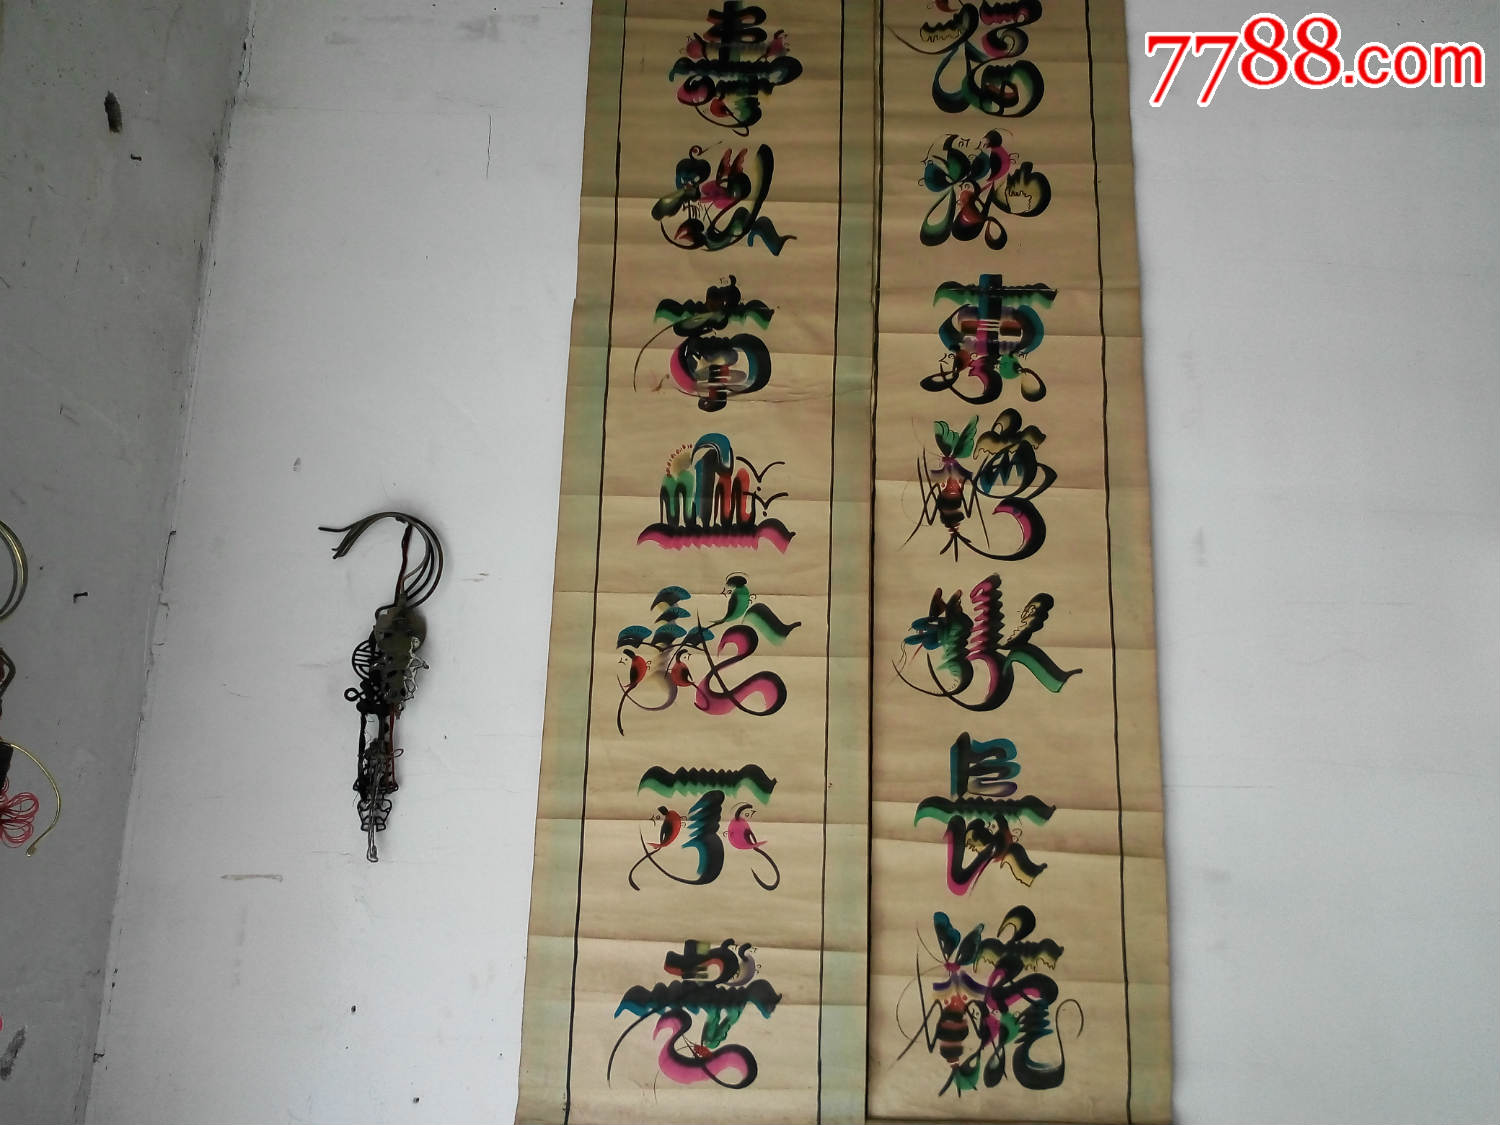 7788.com
福如东海水長流
壽比南山松不老